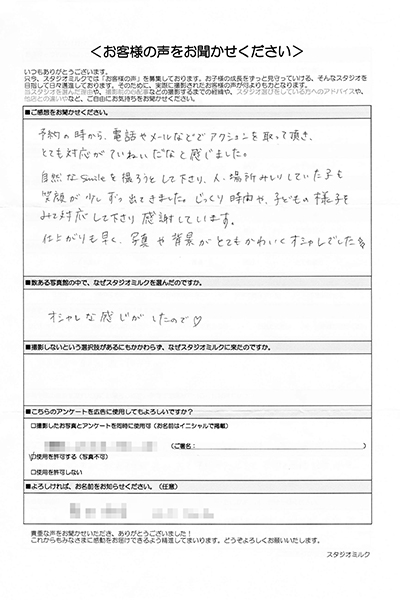 ＜お客様の声をお聞かせください＞
いつもありがとうございます。
只今、スタジオミルクでは「お客様の声」を募集しております。お子様の成長をずっと見守っていける、そんなスタジオを
目指して日々邁進しております。そのために、実際に撮影されたお客様の声が何よりも力となります。
当スタジオを選んだ理由や、撮影前の心配事などの撮影するまでの経緯や、スタジオ選びをしている方へのアドバイスや、
他店との違いやなど、ご自由にお気持ちをお聞かせください。
■ご感想をお聞かせください。
予約の時から、電話やメールなどでアクションを取って頂き、
とても対応がていねいだなて感じました。
自然なSmileを撮ろうとして下さり、人、場所みしりしていた子も
笑顔が少しずつ出てきました。じっくり時間や、子どもの様子を
みて対応して下さり感謝しています。
仕上がりも早く、写真や背景がとてもかわいくオシャレでした
■数ある写真館の中で、なぜスタジオミルクを選んだのですか。
オシャレな感じがしたので♡
■撮影しないという選択肢があるにもかかわらず、なぜスタジオミルクに来たのですか。
■こちらのアンケートを広告に使用してもよろしいですか？
□撮影したお写真とアンケートを同時に使用可（お名前はイニシャルで掲載）
（ご署名：　）
☑使用を許可する（写真不可）
□使用を許可しない
■よろしければ、お名前をお知らせください。（任意）
貴重な声をお聞かせいただき、ありがとうございました！
これからもみなさまに感動をお届けできるよう精進してまいります。どうぞよろしくお願いいたします。
スタジオミルク